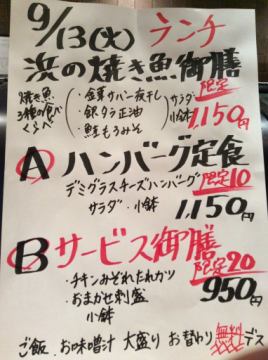 9/13(火) ランチ
浜の焼き魚御膳
焼き魚
3種の食べ
くらべ
・金華サバ一夜干し
・銀タラ正油
・鮭もろみそ
サラダ・
小鉢
限定
1,150円
A ハンバーグ定食
デミグラスチーズハンバーグ 限定10
サラダ・小鉢
1,150円
B サービス御膳
限定20
・チキンみぞれたれカツ
・おまかせ刺盛
小鉢
950円
ご飯、お味噌汁 大盛り お替わり 無料デス